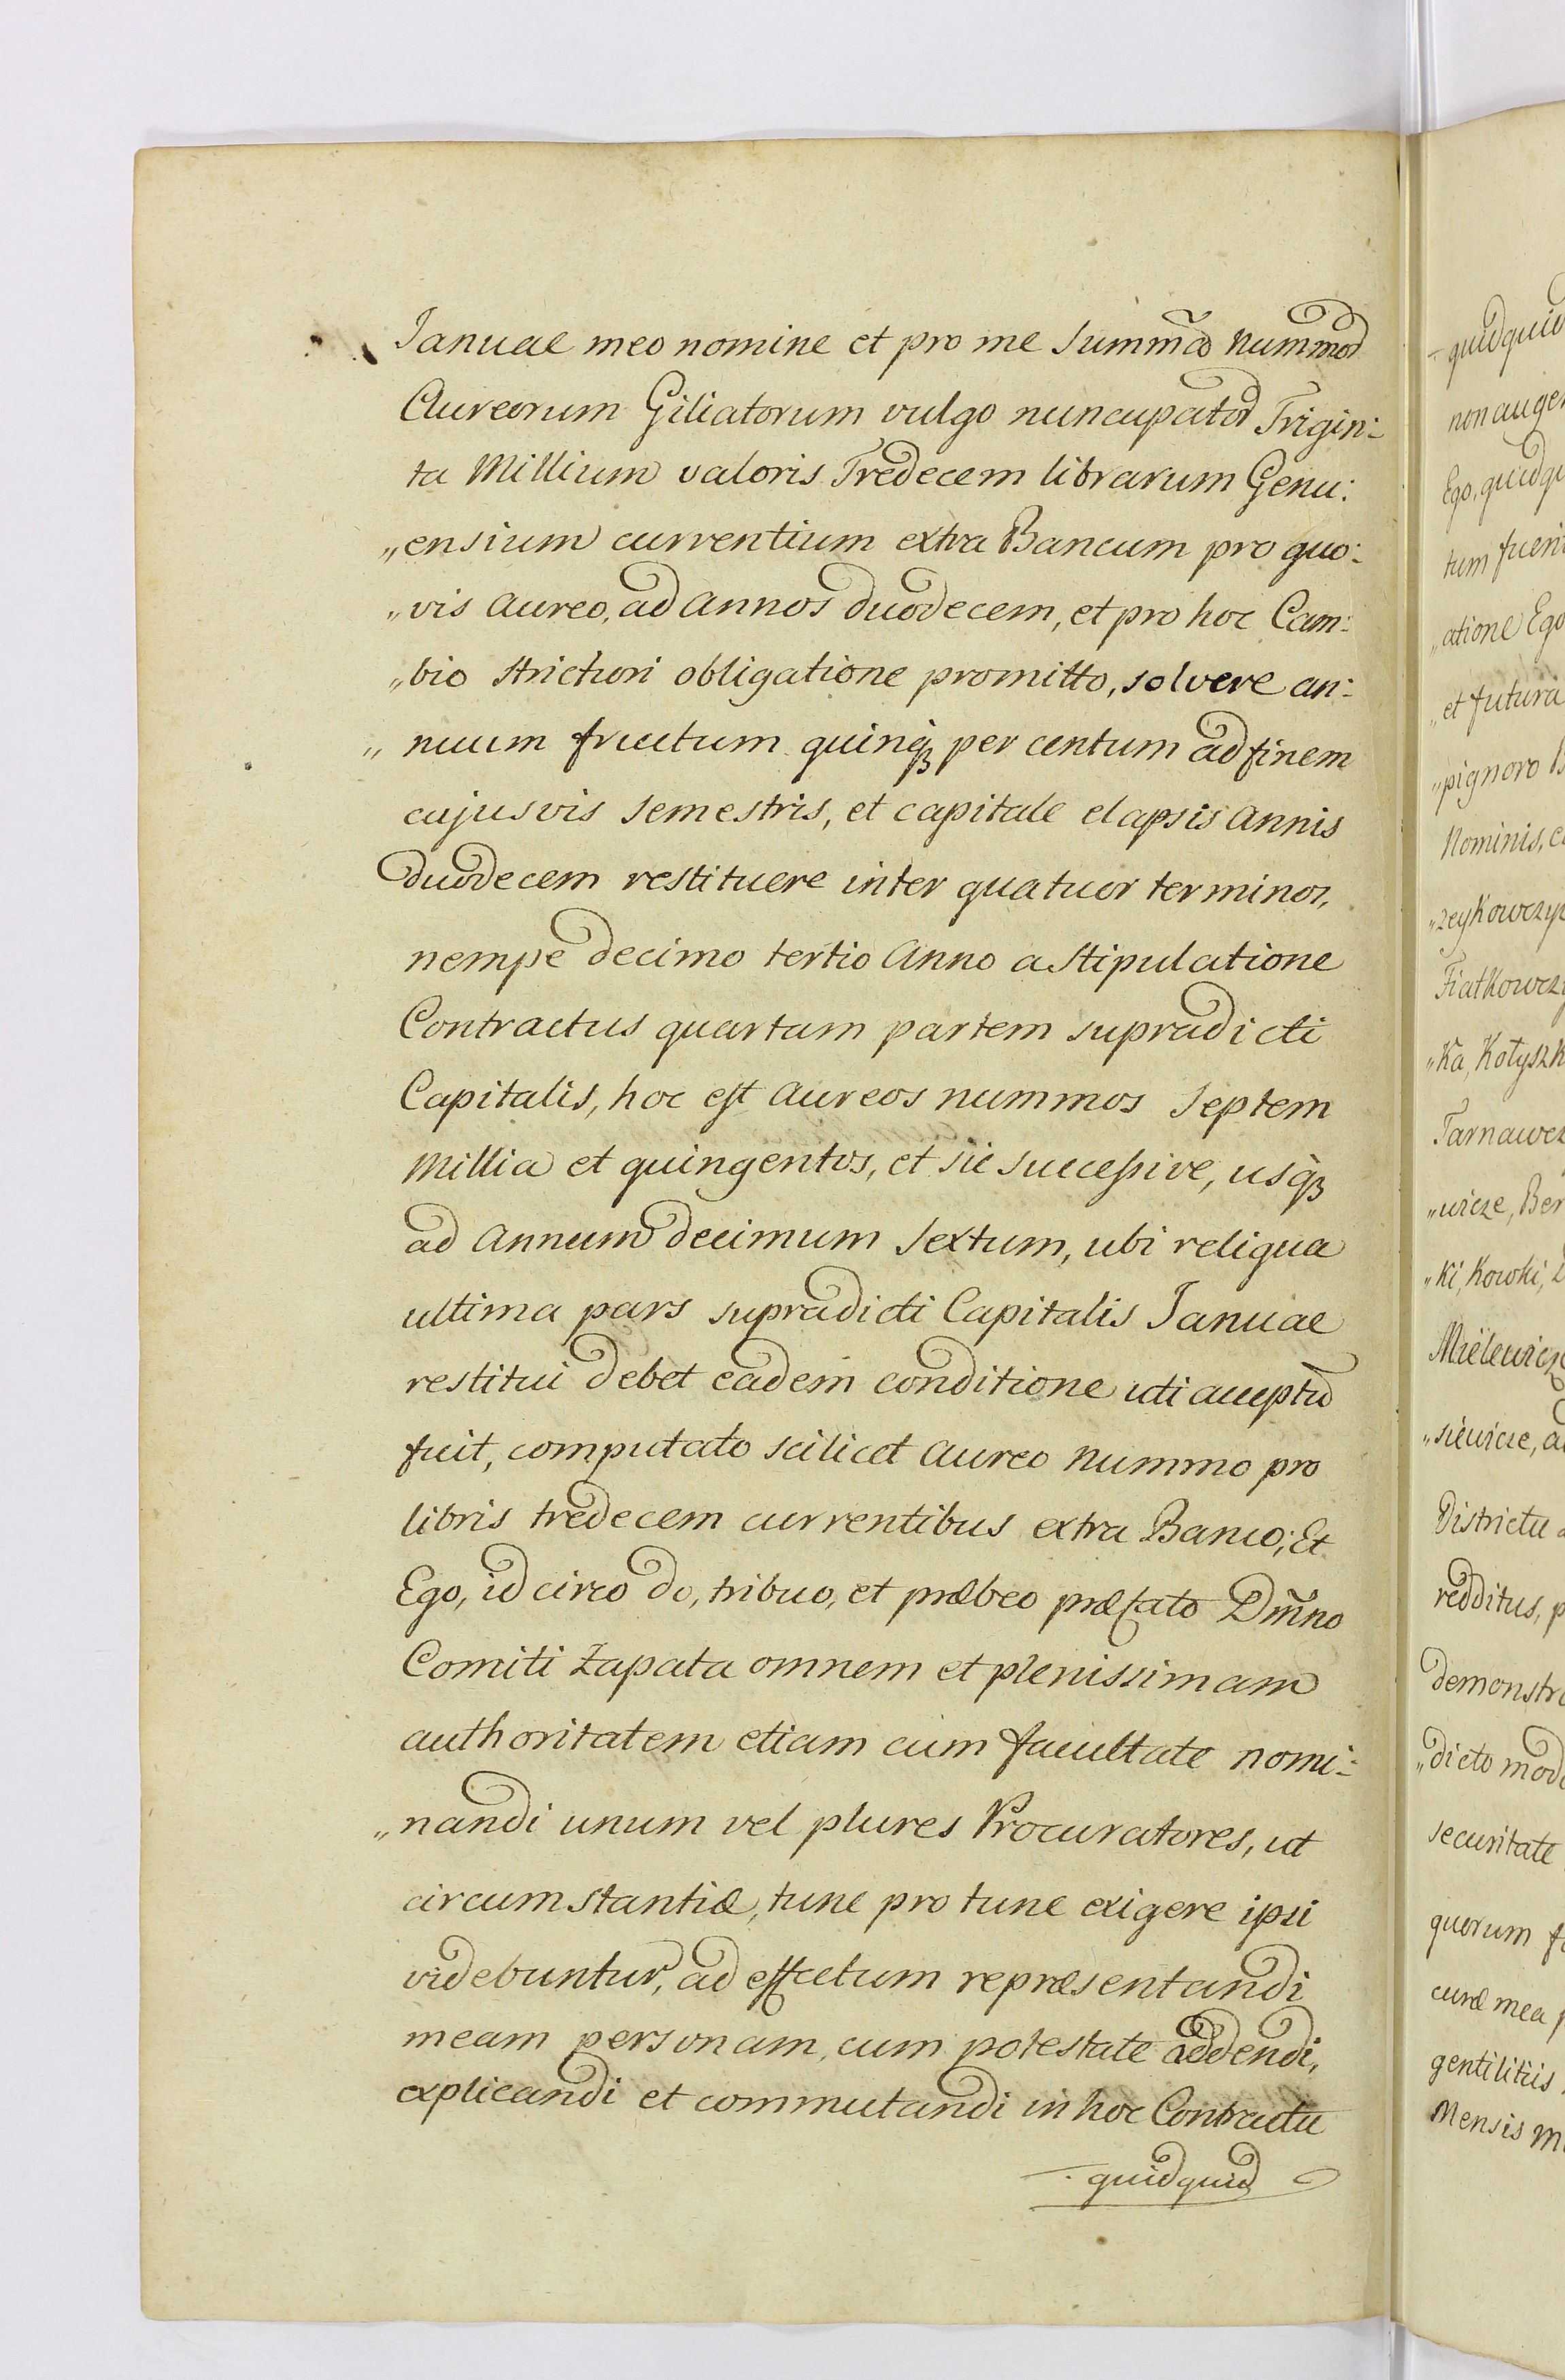 Januae meo nomine et pro me Summa͂ Nummor͂
Aureorum Giliatorum vulgo nuncupator͂ Trigin:
ta Millium valoris Tredecem librarum Genu:
„ensium currentium extra Bancum pro quo:
„vis aureo, ad annos duodecem, et pro hoc Cam:
„bio strictiori obligatione promitto, solvere an:
„nuum fructum quinqꝫ per centum ad finem
cujusvis Semestris, et capitale elapsis annis
duodecem restituere inter quatuor terminos,
nempe decimo tertio anno a Stipulatione
Contractus quartam partem supradicti
Capitalis, hoc est aureos nummos Septem
Millia et quingentos, et sic successive, usqꝫ
ad annum decimum Sextum, ubi reliqua
ultima pars supradicti Capitalis Januae
restitui debet eadem conditione uti acceptu͂
fuit, computato scilicet aureo nummo pro
libris tredecem currentibus extra Banco; Et
Ego, idcirco do, tribuo, et præbeo præfato Dm̃no
Comiti Zapata omnem et plenissimam
authoritatem etiam cum facultate nomi:
„nandi unum vel plures Procuratores, ut
circumstantiæ, tunc pro tunc exigere ipsi
videbuntur, ad effectum repræsentandi
meam personam, cum potestate addendi,
explicandi et commutandi in hoc Contractu
quidquid
quidquid
non auge
Ego, quidqu
tum fueri
„atione Ego
„et futura
„pignoro
Nominis,
„zeykowczyz
Fiatkowcz
„ka, Kołyszk
Tarnawcz
„wicze, Ber
„ki, Kowki,
Mielewicz
„siewicze,
Districtu
redditus, p
demonstr
„dicto mod
securitate
quorum f
curæ mea
gentilitiis
Mensis M